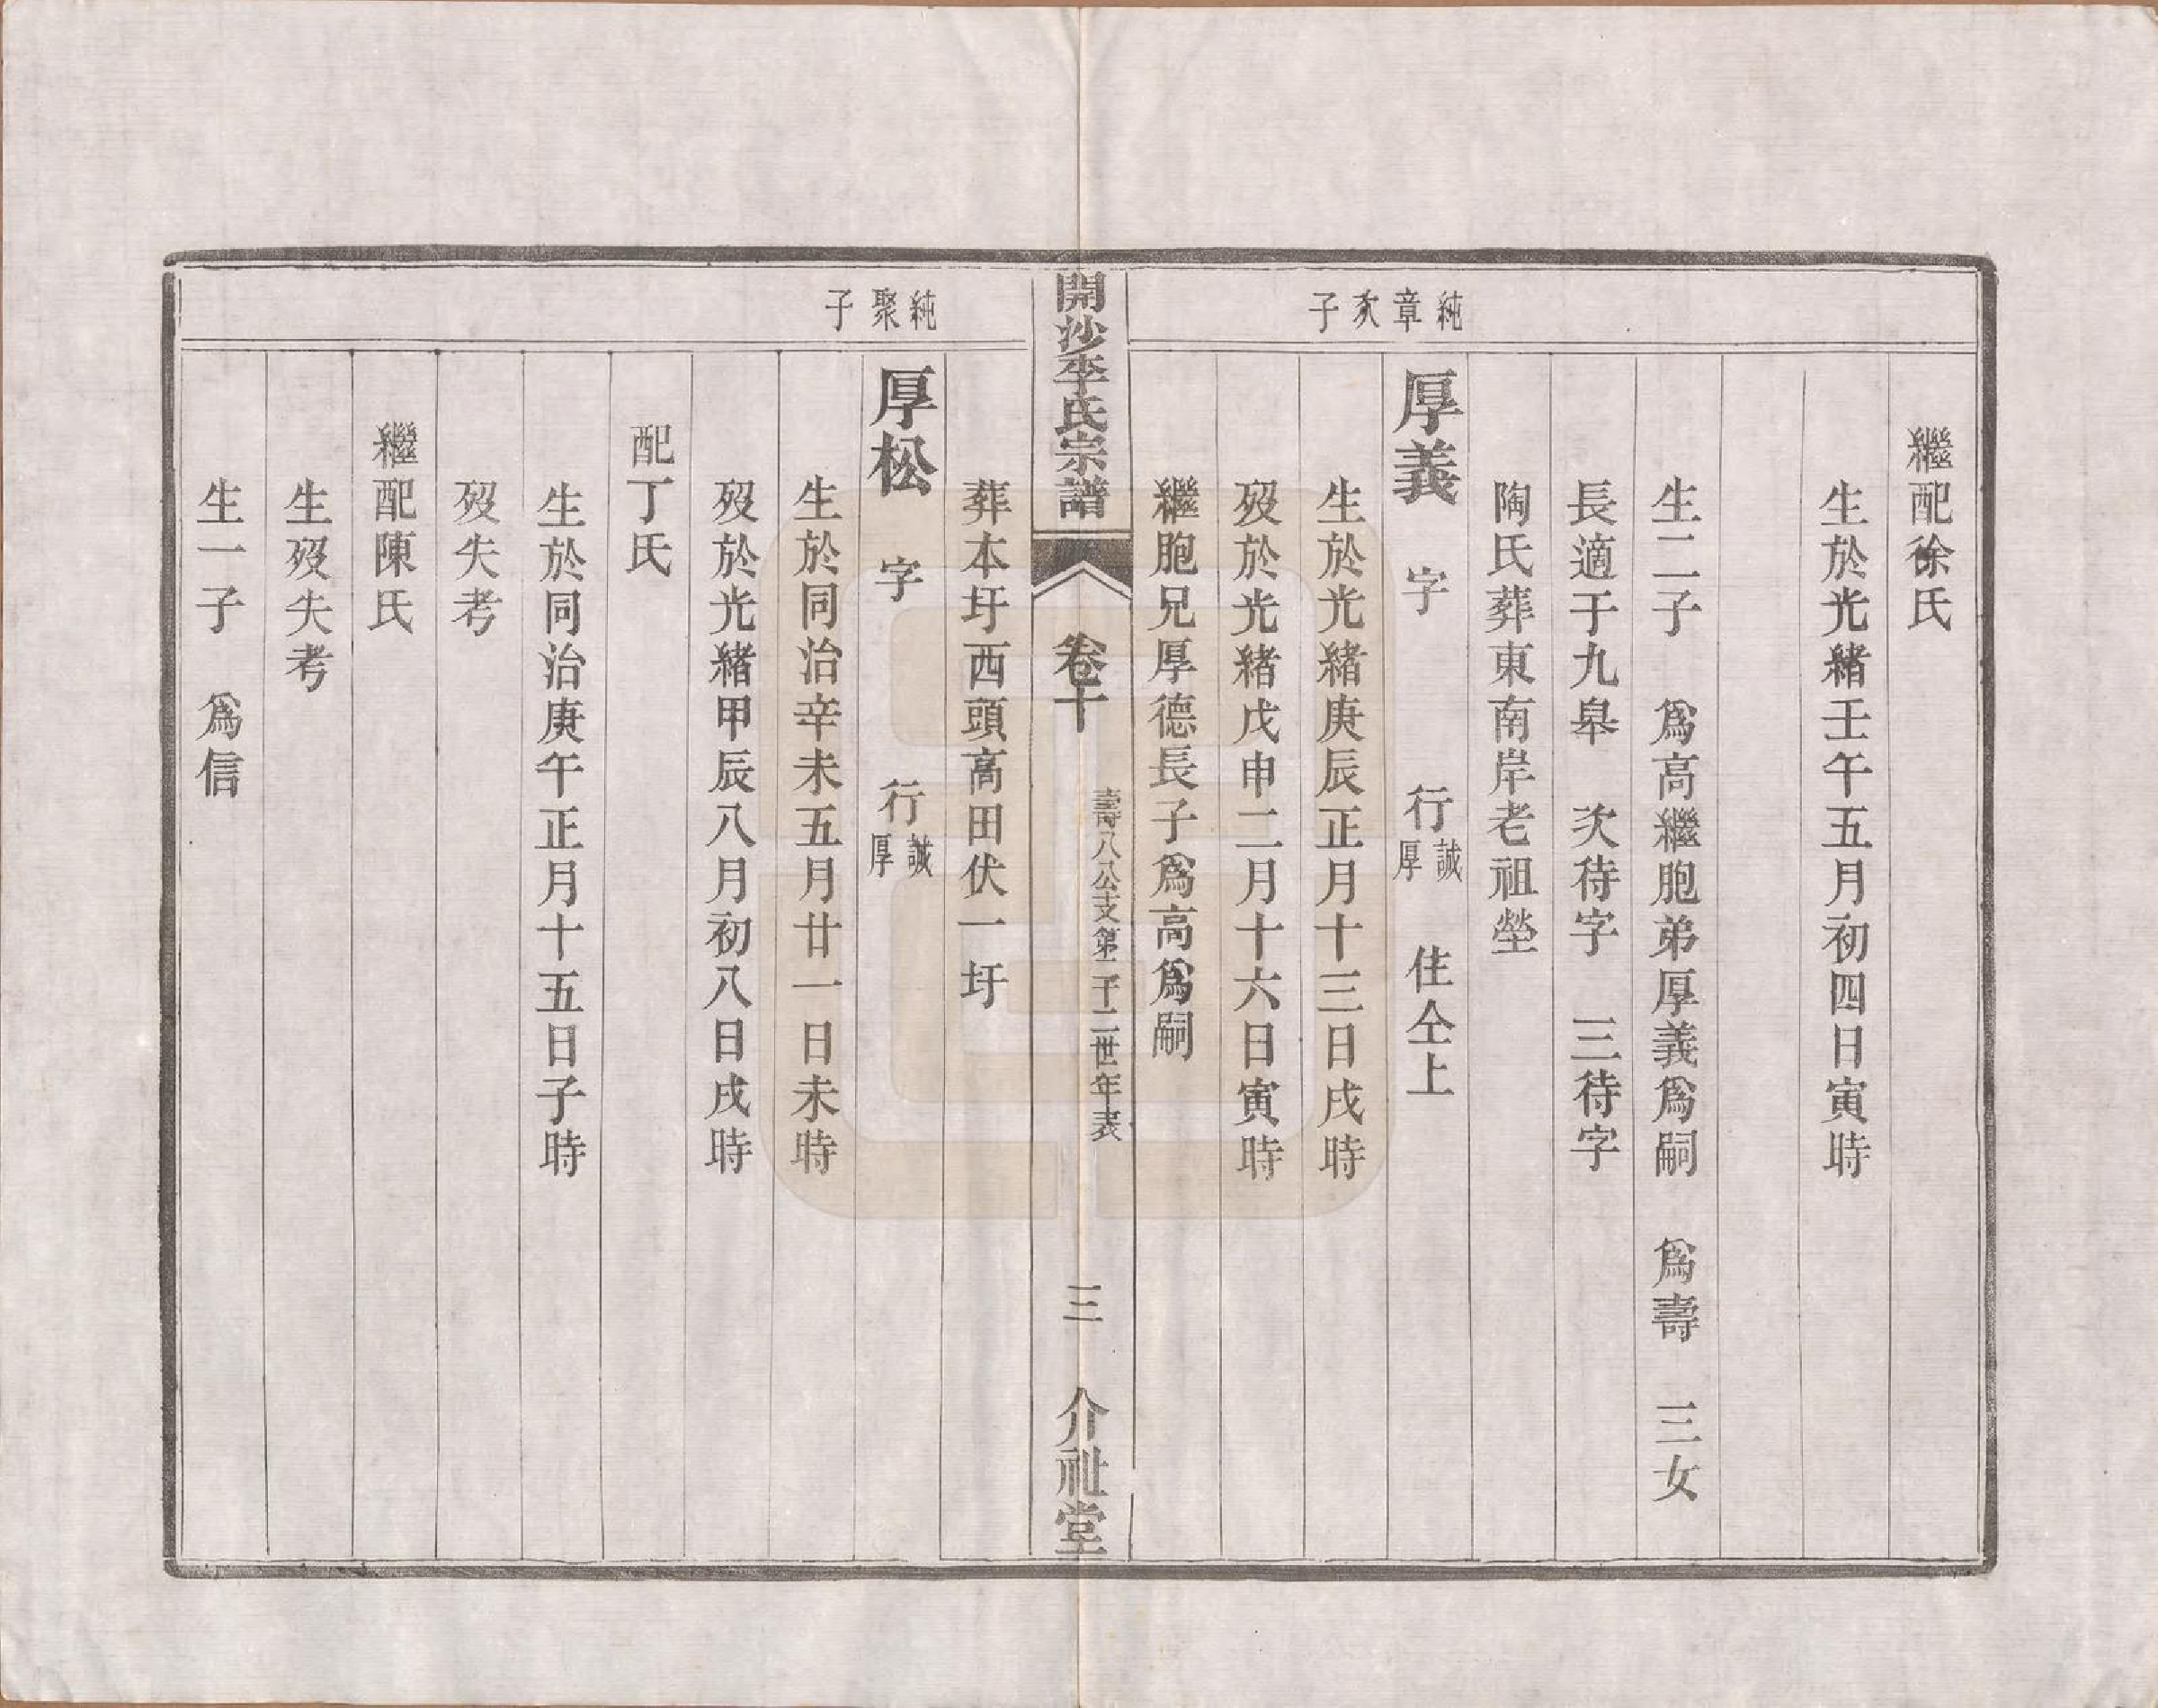 繼配徐氏
生於光緒壬午五月初四日寅時
生二子　爲高繼胞弟厚義爲嗣　爲壽　三女
長適于九皋　次待字　三待字
陶氏葬東南岸老祖塋
純章次子
厚義　字　行誠厚　住仝上
生於光緒庚辰正月十三日戌時
歿於光緒戊申二月十六日寅時
繼胞兄厚德長子爲高爲嗣
開沙李氏宗譜　卷十　壽八公支第二十二世年表　三　介祉堂
葬本圩西頭高田伏一圩
純聚子
厚松　字　行誠厚
生於同治辛未五月廿一日未時
歿於光緒甲辰八月初八日戌時
配丁氏
生於同治庚午正月十五日子時
歿失考
繼配陳氏
生歿失考
生一子　爲信